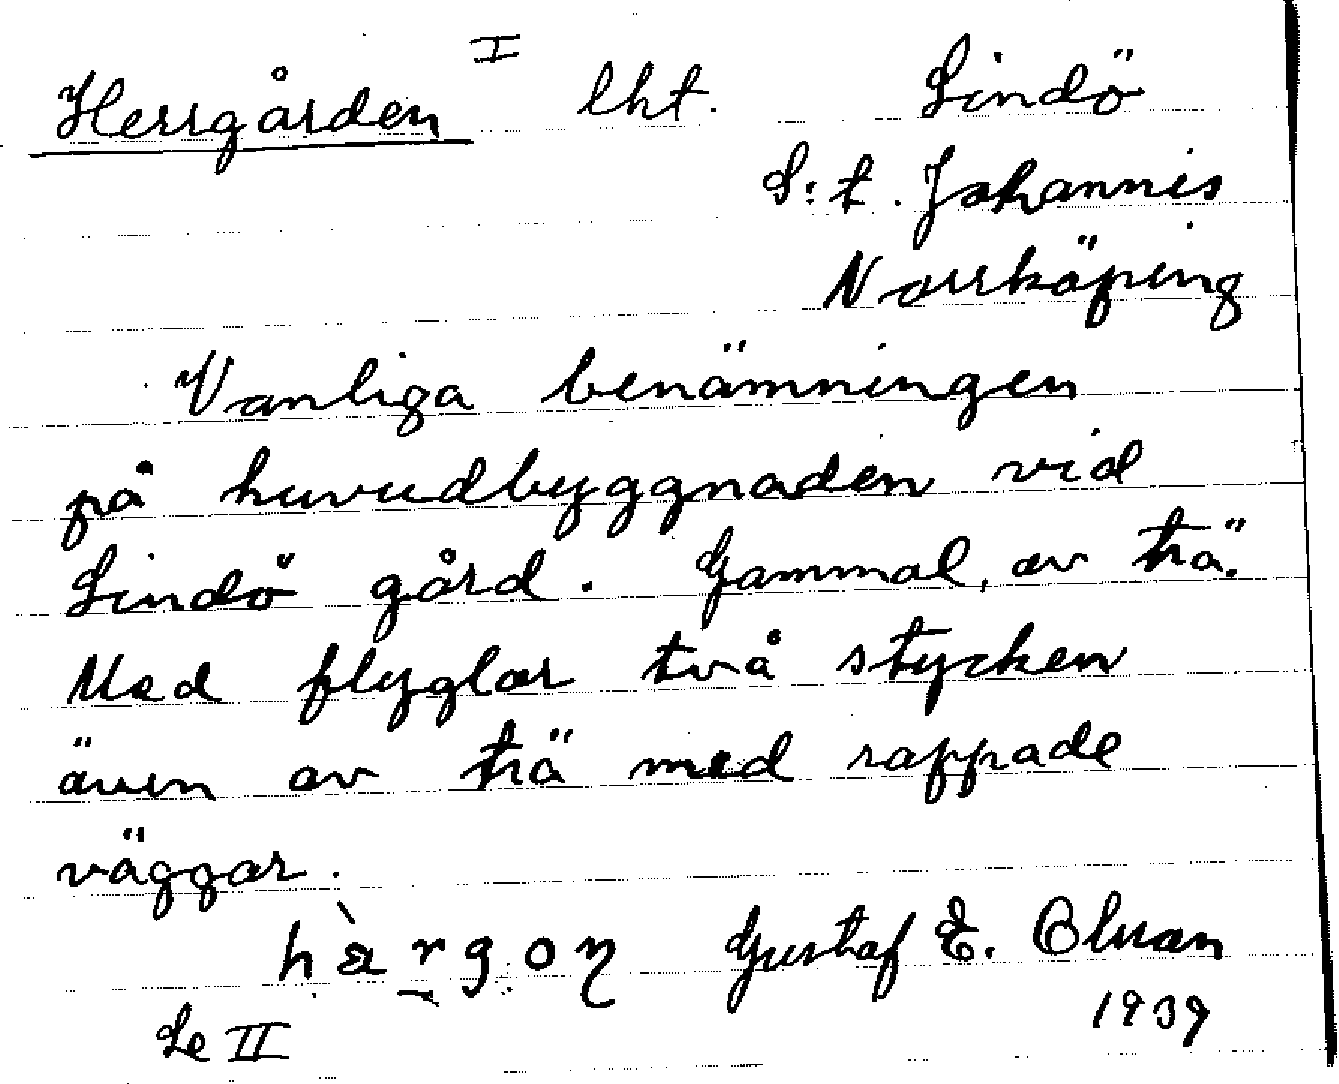 Herrgården I lht. Lindö
S:t. Johannis
Norrköping
Vanliga benämningen
på huvudbyggnaden vid
Lindö gård. Gammal, av trä.
Med flyglar två stycken
även av trä med rappade
väggar.
Gustaf E. Olsson
Se II 1939